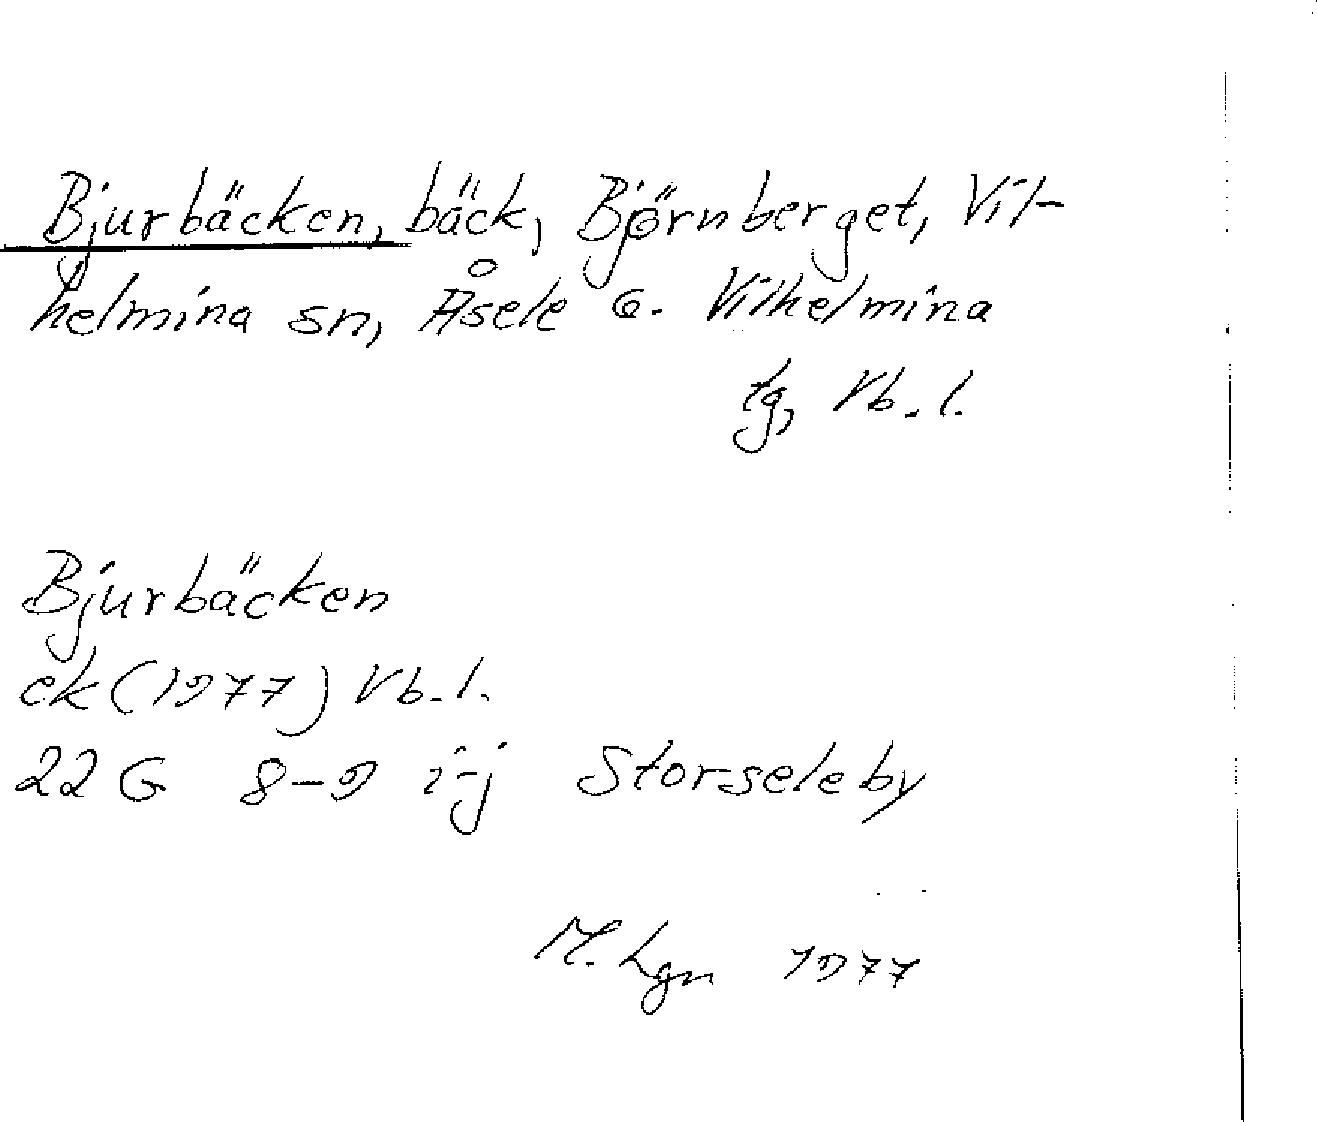 Bjurbäcken, bäck, Björnberget, Vil-
helmina sn, Åsele G. Vilhelmina
tg, Vb. l.
Bjurbäcken
ek (1977) Vb. l.
22 G 8-9 i-j Storseleby
M. Lgn 1977